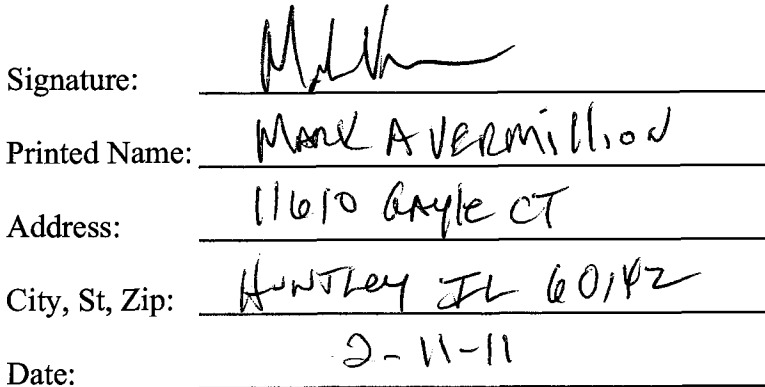 Signature:
Printed Name: MARK A VERMillioN
Address: 11610 GAyle CT
City, St, Zip: HuNTLey IL 60142
Date: 2-11-11